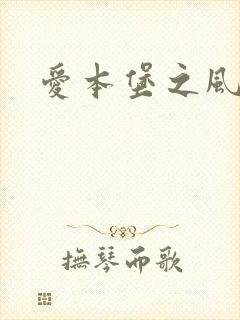 愛本堡之風
撫琴而歌